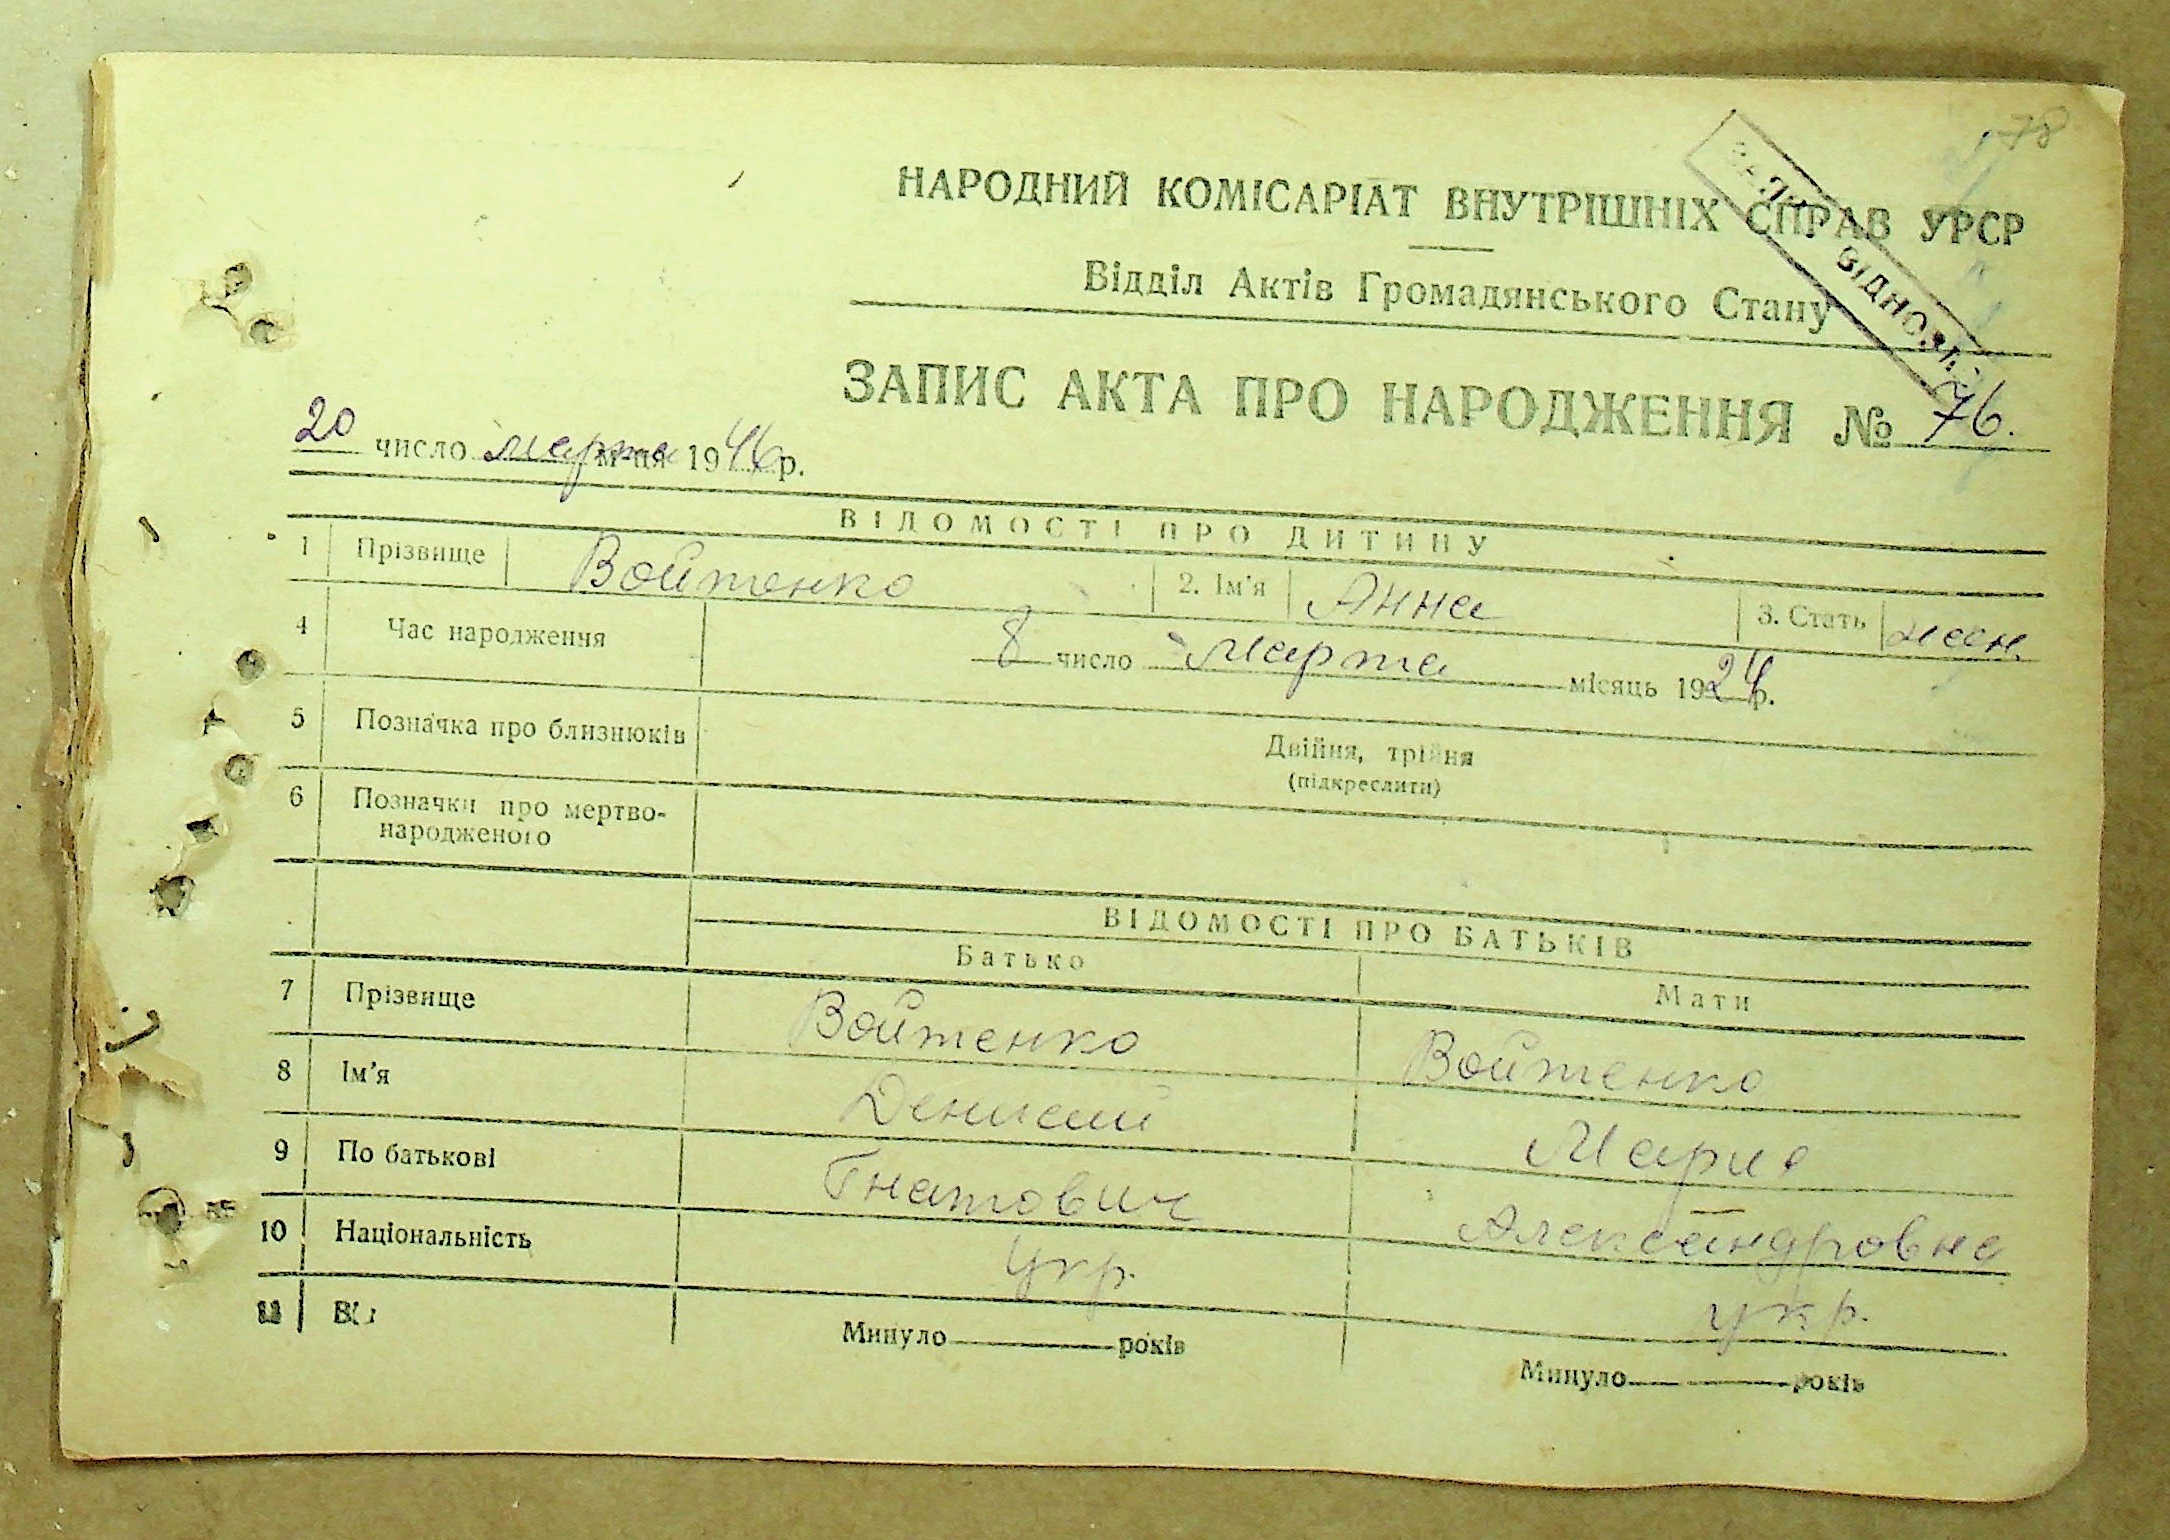 78
НАРОДНИЙ КОМІСАРІАТ ВНУТРІШНІХ СПРАВ УРСР
Відділ Актів Громадянського Стану
ВІДНОВЛ.
ЗАПИС АКТА ПРО НАРОДЖЕННЯ № 76.
20 число марта м-ця 1946 р.
ВІДОМОСТІ ПРО ДИТИНУ
1 Прізвище Войтенко 2. Ім'я Анна 3. Стать
4 Час народження 8 число марта місяць 1924 р.
5 Позначка про близнюків Двійня, трійня
(підкреслити)
6 Позначки про мертво-
народженого
ВІДОМОСТІ ПРО БАТЬКІВ
Батько Мати
7 Прізвище Войтенко Войтенко
8 Ім'я Денисий Мария
9 По батькові Гнатович Александровна
10 Національність укр. укр.
11 Вік Минуло років Минуло років